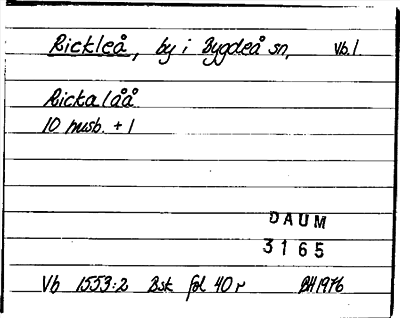 Rickleå, by i Bygdeå sn, Vb.l
Ricka låå
10 husb. + 1
DAUM
3165
Vb 1553:2 Bsk fol 40 r BH 1976